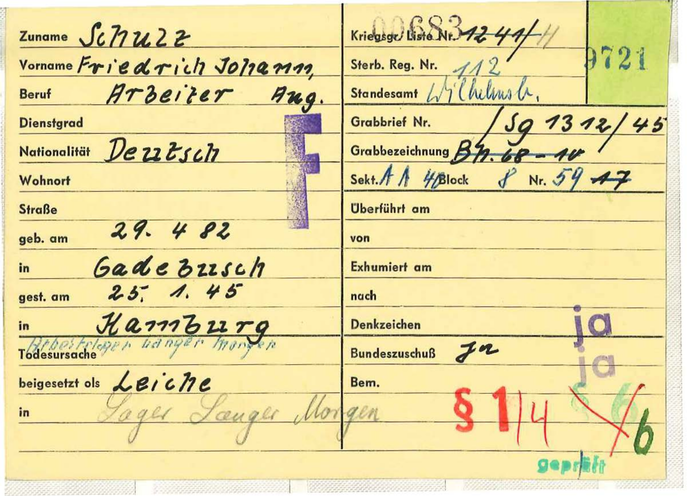 Zuname Schulz
Vorname Friedrich Johann,
Beruf Arbeiter Aug.
Dienstgrad
Nationalität Deutsch
Wohnort
Straße
geb. am 29. 4 82
in Gadebusch
gest. am 25. 1. 45
in Hamburg
Langer Morgen
Todesursache
beigesetzt als Leiche
in Lager Langer Morgen
F
00683
Kriegsgr. Liste Nr. 1241/H
9721
Sterb. Reg. Nr. 112
Standesamt Wilhelmsb.
Grabbrief Nr. /Sg 1312/45
Grabbezeichnung Bh. 68-10
Sekt. AA 40 Block 8 Nr. 59 17
Überführt am
von
Exhumiert am
nach
Denkzeichen ja
Bundeszuschuß ja
ja
Bem.
§ 1/4 § 6 b
geprüft